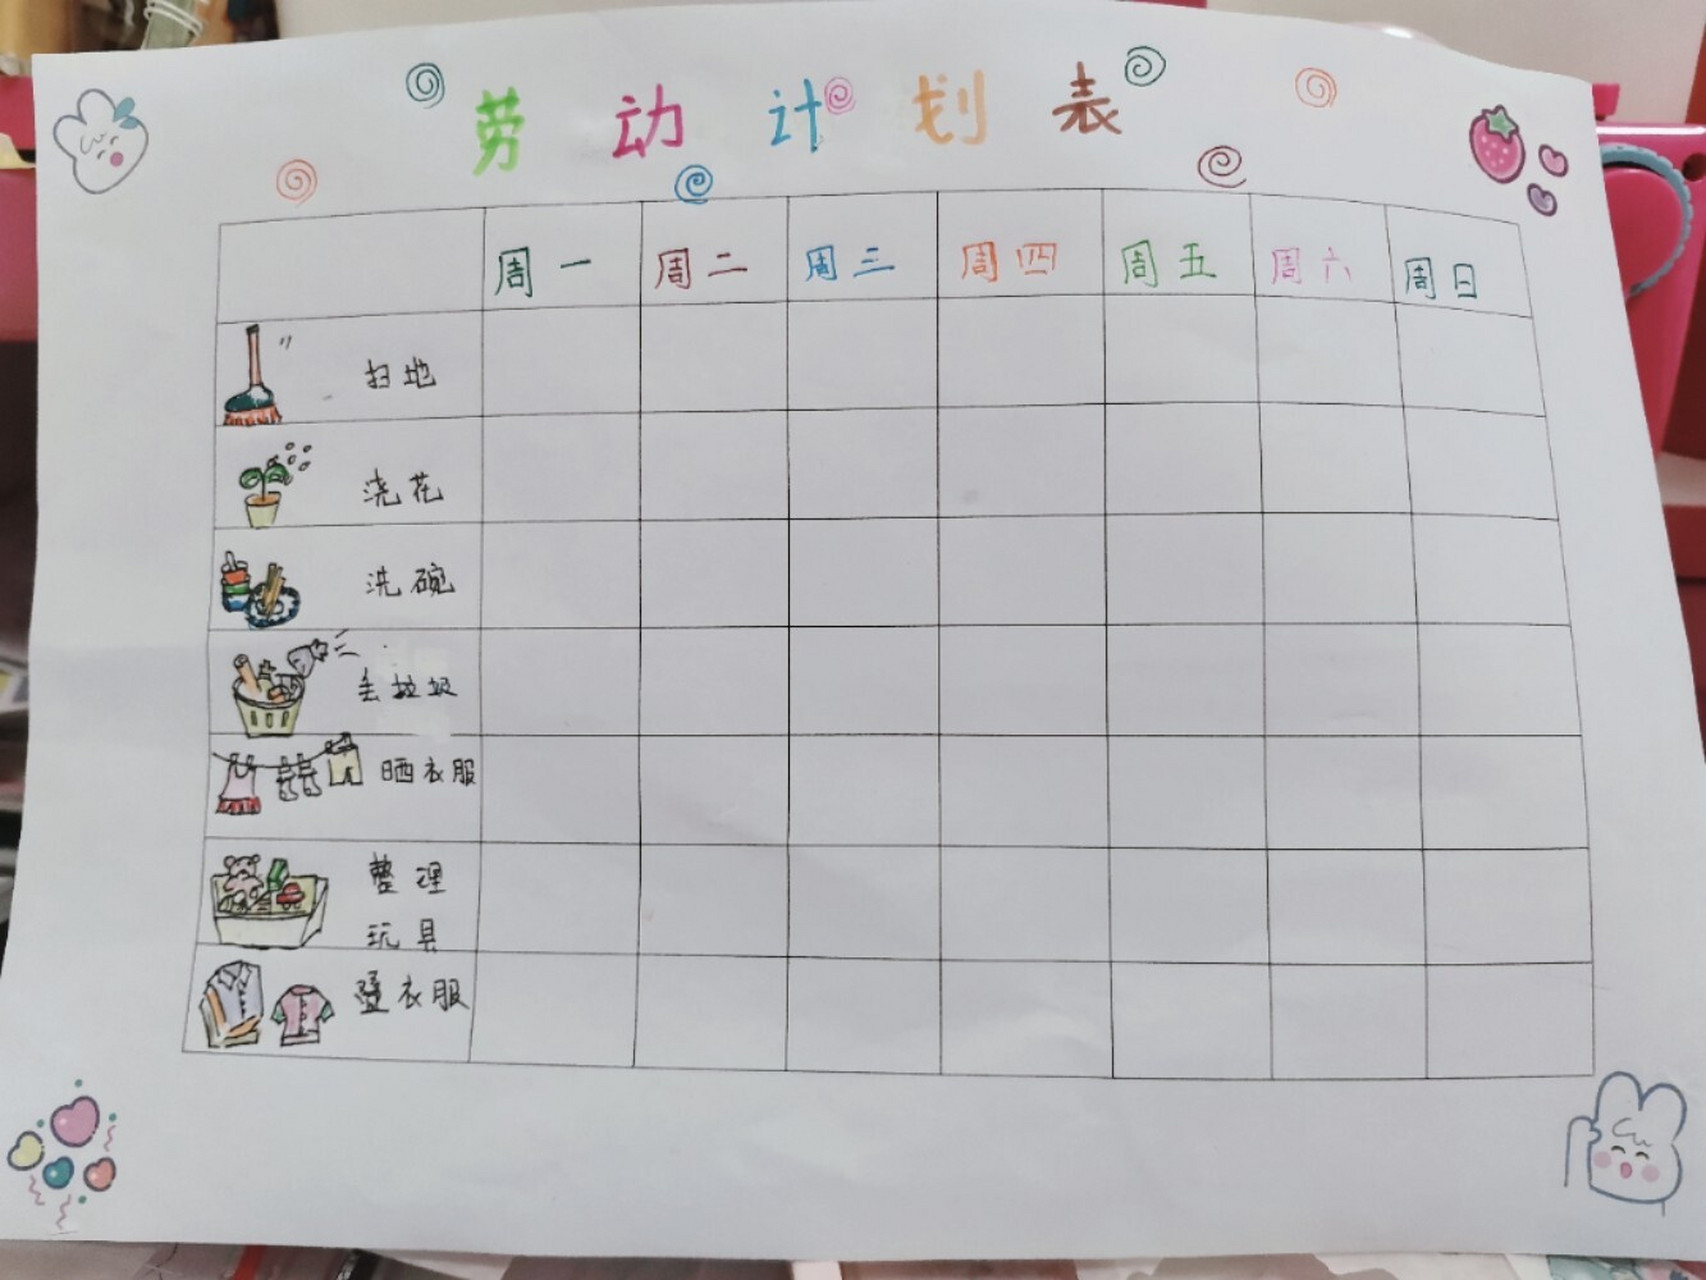 劳动计划表
周一 周二 周三 周四 周五 周六 周日
扫地
浇花
洗碗
丢垃圾
晒衣服
整理
玩具
叠衣服